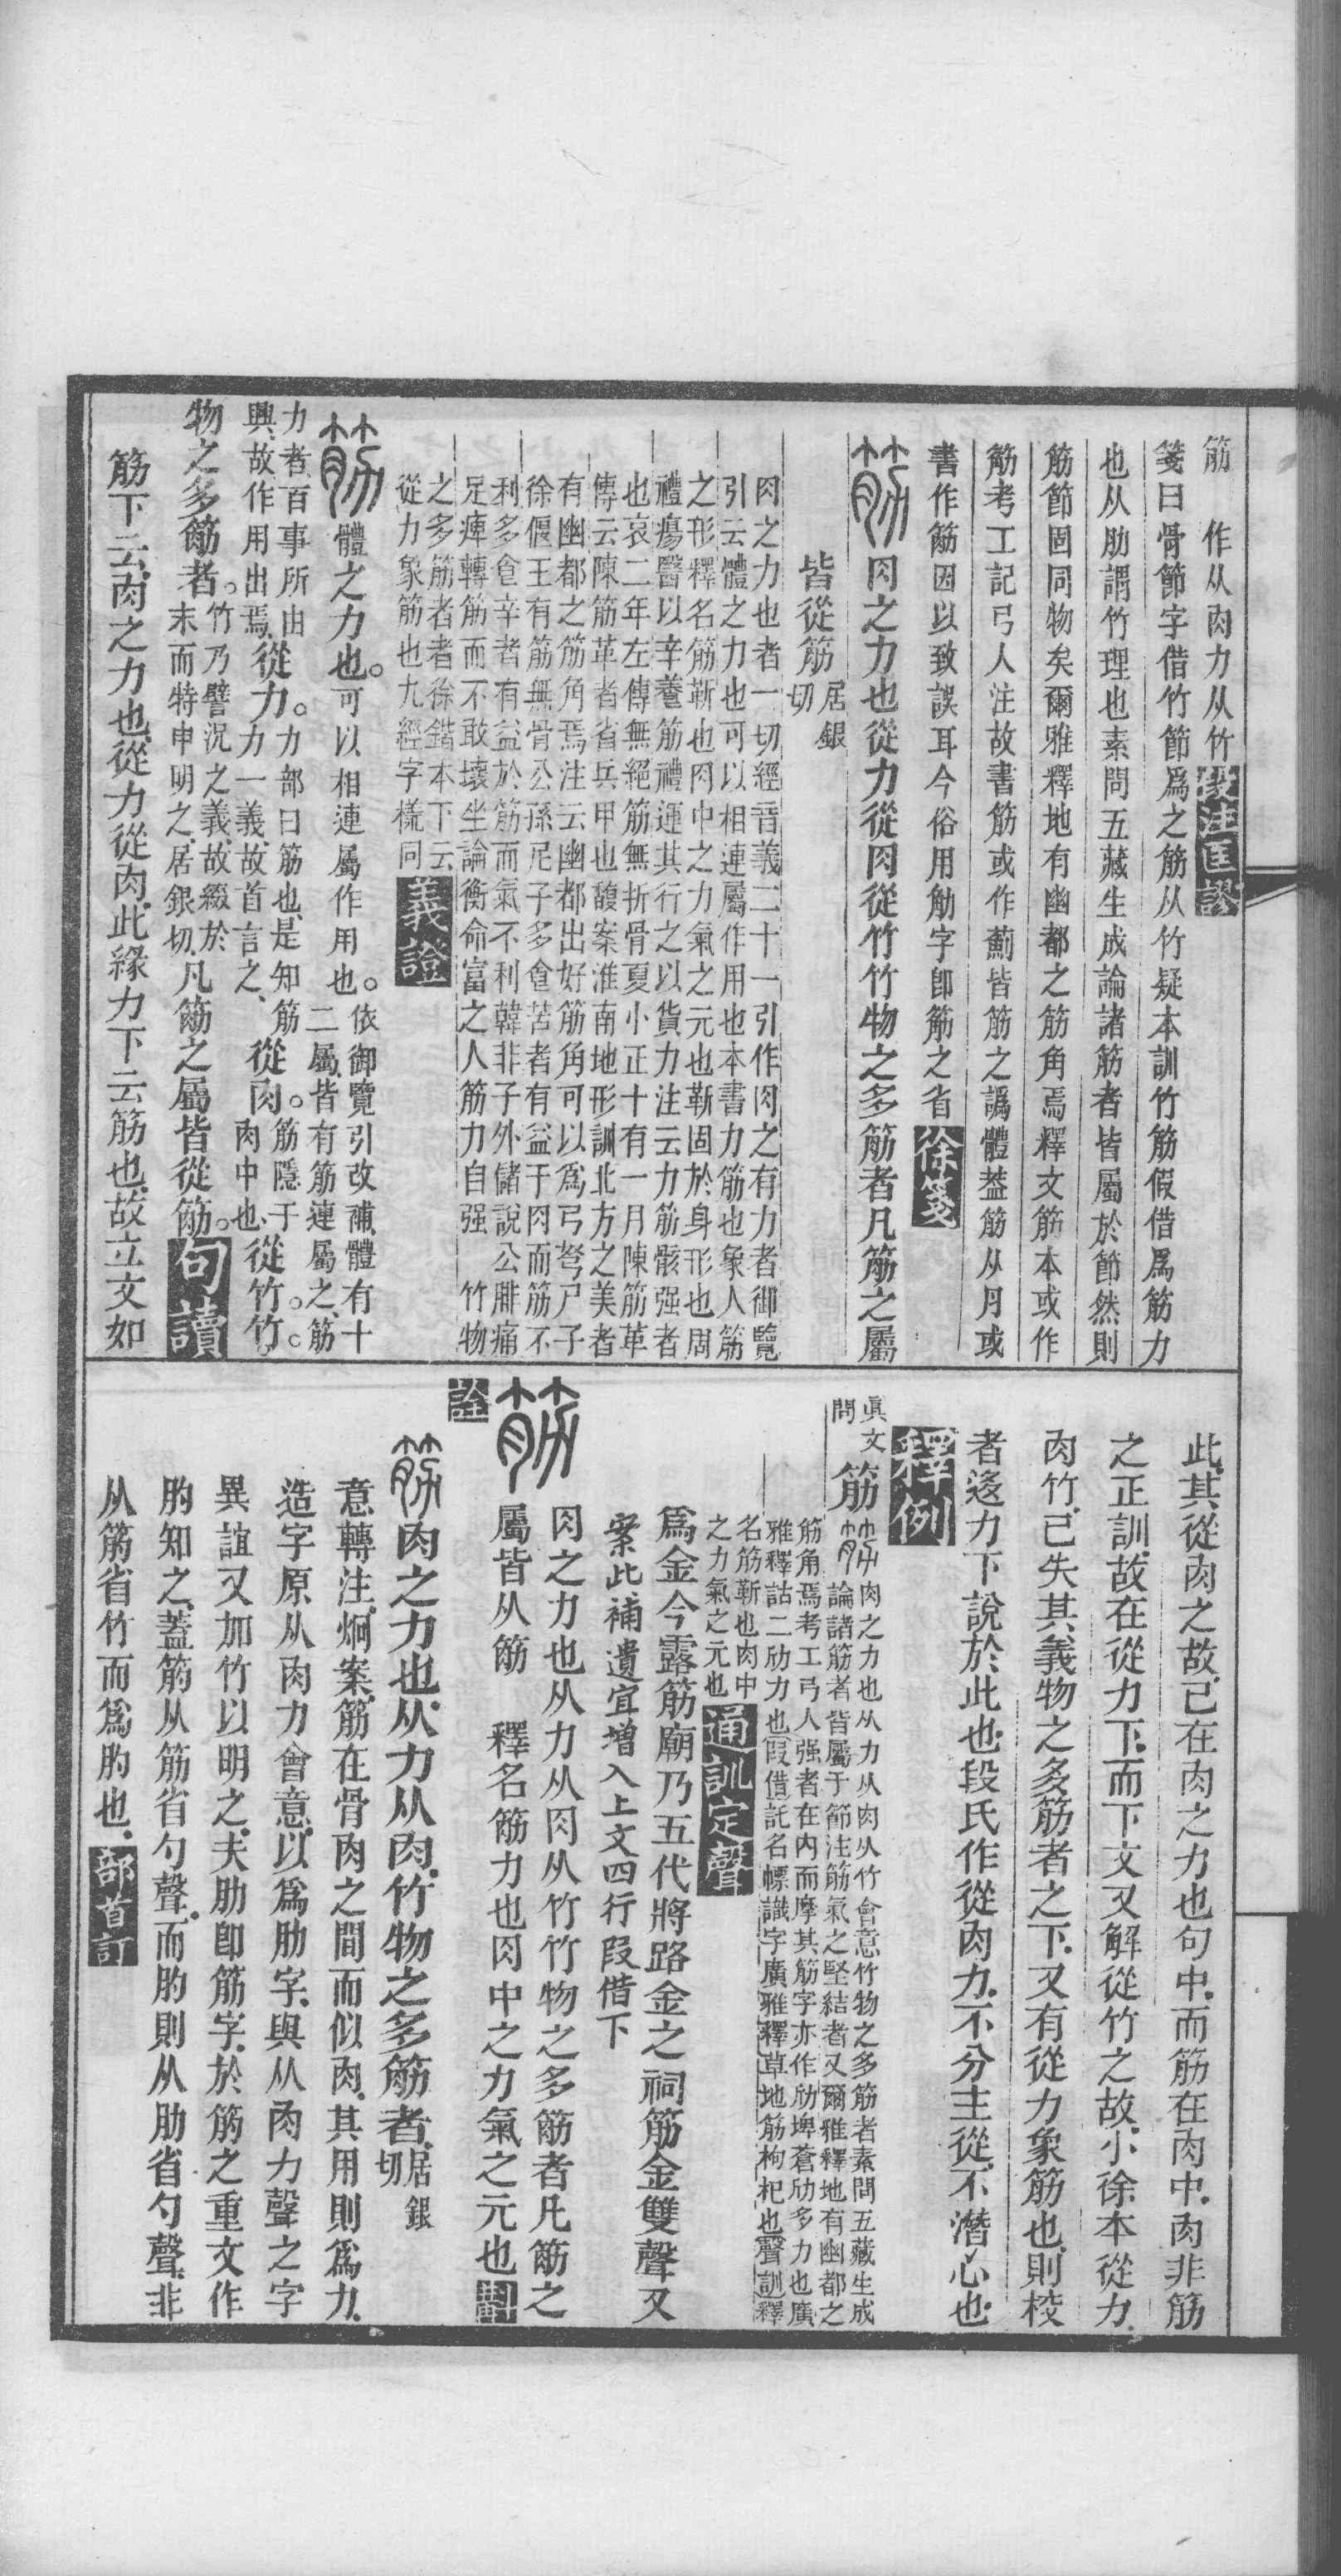 筋　作从肉力从竹段注匡謬
箋曰骨節字借竹節爲之筋从竹疑本訓竹筋假借爲筋力
也从肋謂竹理也素問五藏生成論諸筋者皆屬於節然則
筋節固同物矣爾雅釋地有幽都之筋角焉釋文筋本或作
筋考工記弓人注故書筋或作薊皆筋之譌體葢筋从月或
書作筋因以致誤耳今俗用觔字卽筋之省徐箋
筋肉之力也從力從肉從竹竹物之多筋者凡筋之屬
皆從筋居銀切
肉之力也者一切經音義二十一引作肉之有力者御覽
引云體之力也可以相連屬作用也本書力筋也象人筋
之形釋名筋靳也肉中之力氣之元也靳固於身形也周
禮瘍醫以辛養筋禮運其行之以貨力注云力筋骸强者
也哀二年左傳無絕筋無折骨夏小正十有一月陳筋革
傳云陳筋革者省兵甲也馥案淮南地形訓北方之美者
有幽都之筋角焉注云幽都出好筋角可以爲弓弩尸子
徐偃王有筋無骨公孫尼子多食苦者有益于肉而筋不
利多食辛者有益於筋而氣不利韓非子外儲說公腓痛
足痺轉筋而不敢壞坐論衡命富之人筋力自强　竹物
之多筋者者徐鍇本下云
從力象筋也九經字樣同義證
筋體之力也。可以相連屬作用也。依御覽引改補體有十二屬皆有筋連屬之筋
力者百事所由興故作用出焉從力。力部曰筋也是知筋力一義故首言之從肉。筋隱于肉中也從竹。竹。
物之多筋者。竹乃譬況之義故綴於末而特申明之居銀切凡筋之屬皆從筋。句讀
筋下云肉之力也從力從肉此緣力下云筋也故立文如
此其從肉之故已在肉之力也句中而筋在肉中肉非筋
之正訓故在從力下而下文又解從竹之故小徐本從力
肉竹已失其義物之多筋者之下又有從力象筋也則校
者迻力下說於此也段氏作從肉力不分主從不潛心也
釋例
眞文問筋肉之力也从力从肉从竹會意竹物之多筋者素問五藏生成
論諸筋者皆屬于節注筋氣之堅結者又爾雅釋地有幽都之
筋角焉考工弓人强者在內而摩其筋字亦作劤埤蒼劤多力也廣
雅釋詁二劤力也假借託名幖識字廣雅釋草地筋枸杞也聲訓釋
名筋靳也肉中
之力氣之元也通訓定聲
爲金今露筋廟乃五代將路金之祠筋金雙聲又
案此補遺宜增入上文四行叚借下
筋肉之力也从力从肉从竹竹物之多筋者凡筋之
屬皆从筋　釋名筋力也肉中之力氣之元也斠
詮
筋肉之力也从力从肉竹物之多筋者居銀切
意轉注炯案筋在骨肉之間而似肉其用則爲力
造字原从肉力會意以爲肋字與从肉力聲之字
異誼又加竹以明之夫肋卽筋字於筋之重文作
肑知之蓋筋从筋省勺聲而肑則从肋省勺聲非
从筋省竹而爲肑也部首訂